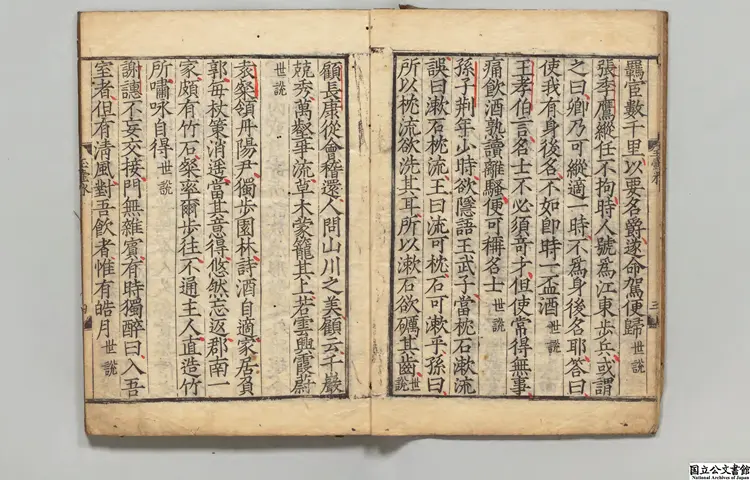 羈宦數千里以要名爵遂命駕便歸 世說
張季鷹縱任不拘時人號為江東步兵或謂
之曰卿乃可縱適一時不為身後名耶答曰
使我有身後名不如即時一盃酒 世說
王孝伯言名士不必須奇才但使常得無事
痛飲酒熟讀離騷便可稱名士 世說
孫子荊年少時欲隱語王武子當枕石漱流
誤曰漱石枕流王曰流可枕石可漱乎孫曰
所以枕流欲洗其耳所以漱石欲礪其齒 世說
顧長康從會稽還人問山川之美顧云千巖
競秀萬壑爭流草木蒙籠其上若雲興霞蔚
世說
袁粲領丹陽尹獨步園林詩酒自適家居負
郭每杖策消遙當其意得悠然忘返郡南一
家頗有竹石粲率爾步往不通主人直造竹
所嘯咏自得 世說
謝譓不妄交接門無雜賓有時獨醉曰入吾
室者但有清風對吾飲者惟有皓月 世說
三
四
国立公文書館
National Archives of Japan